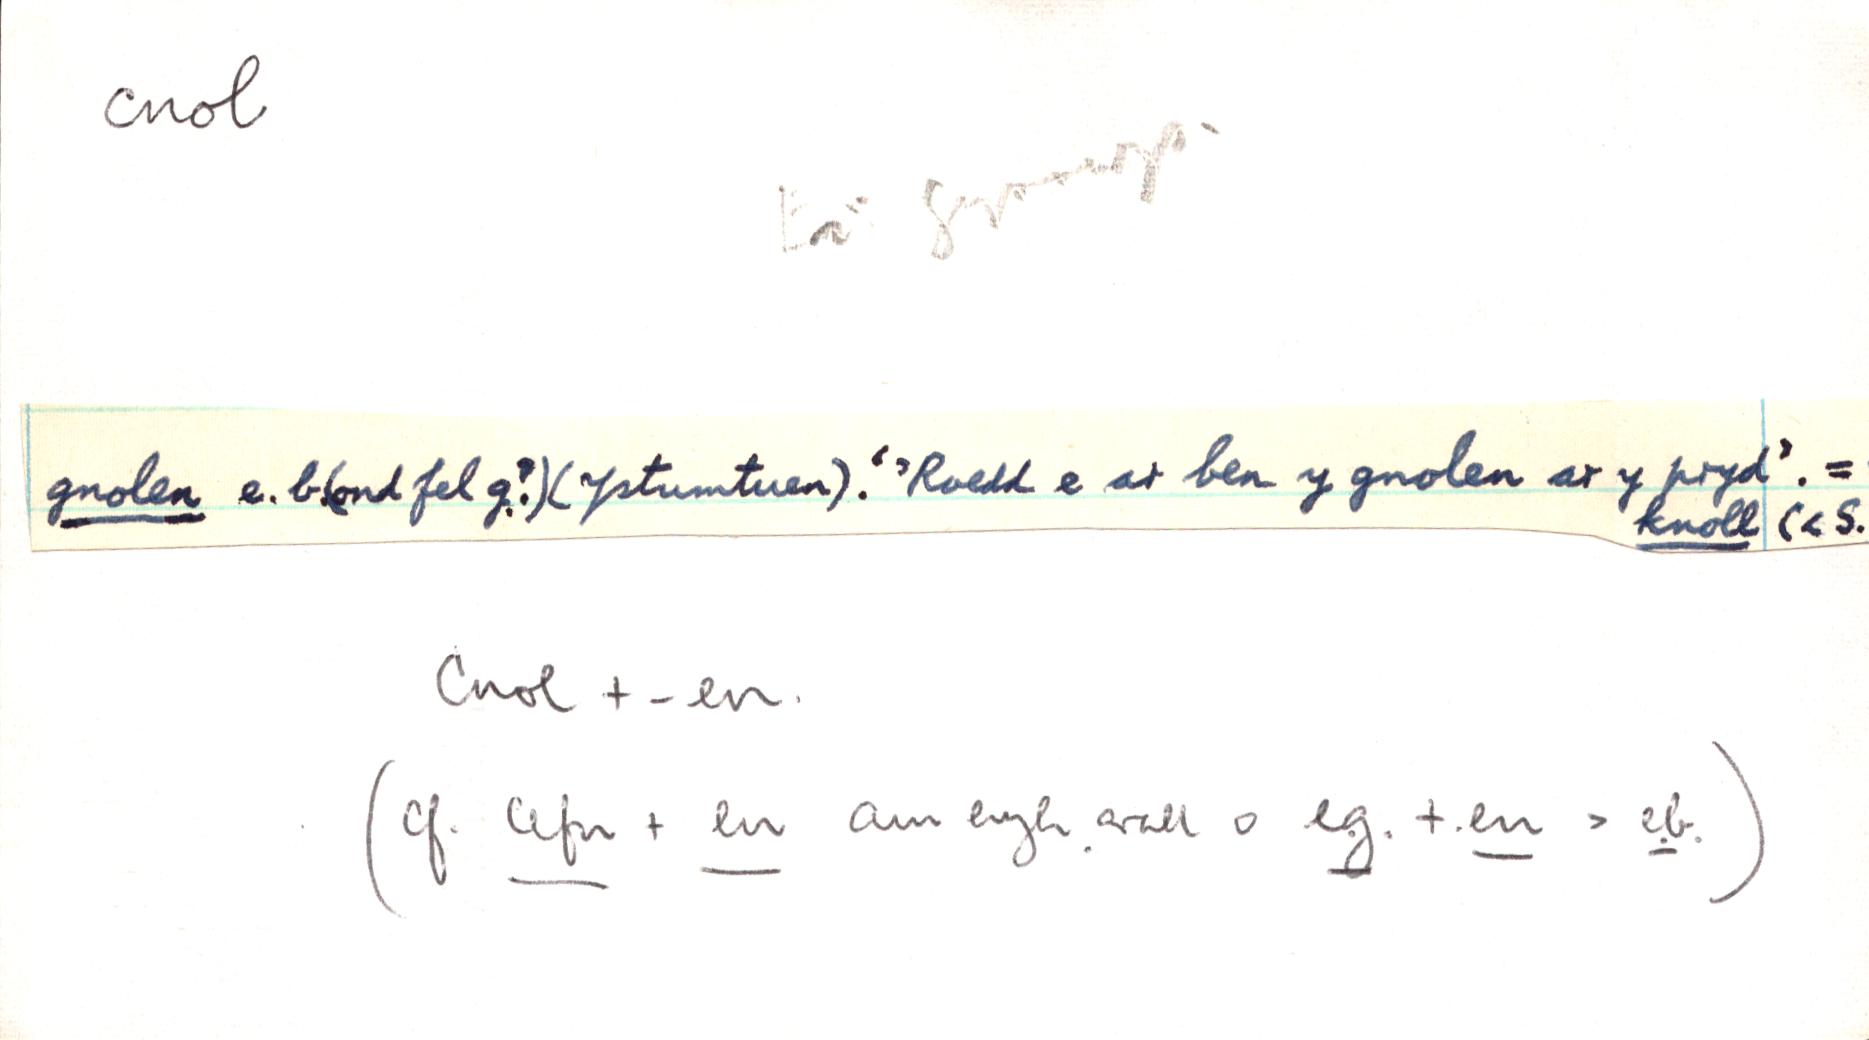 cnol
gnolen e. b. (ond fel g.?) (Ystumtuen). ‘'Roedd e ar ben y gnolen ar y pryd’. =
knoll (< S.
Cnol + -en.
(Cf. cefn + en am engh. arall o eg. + en > eb.)